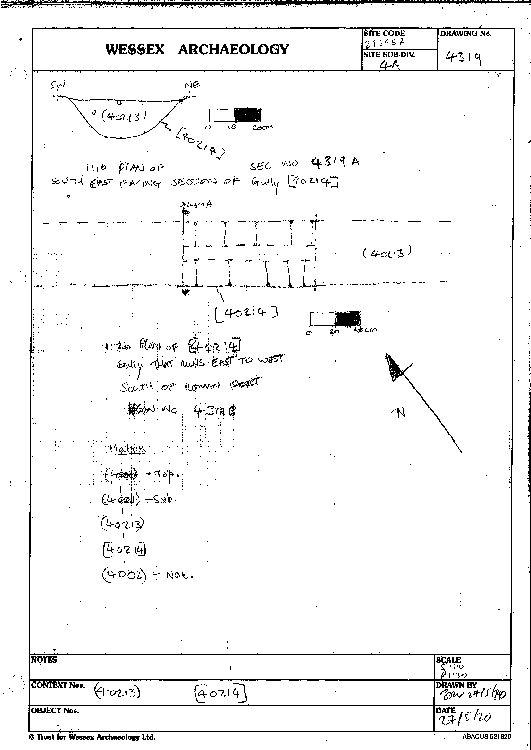 WESSEX ARCHAEOLOGY
SITE CODE
SITE SUB-DIV.
4A
DRAWING No.
4319
SW NE
(40213)
[40214]
0 10 20cm
1:10 PLAN OF SEC NO 4319A
SOUTH EAST FACING SECTION OF Gully [40214]
(40213)
[40214]
0 20 40cm
1:20 PLAN OF [40214]
Gully THAT RUNS EAST TO WEST
SOUTH OF ROMAN
N
Matrix
- Top.
- Sub.
(40213)
[40214]
(4002) - Nat.
NOTES
SCALE
CONTEXT Nos. (40213) [40214]
DRAWN BY
OBJECT Nos.
DATE
27/5/20
© Trust for Wessex Archaeology Ltd.